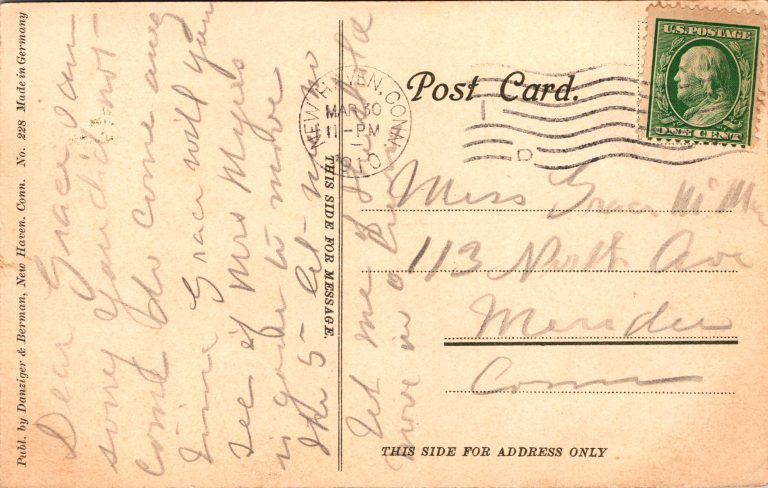 Publ. by Danziger & Berman, New Haven. Conn. No. 228 Made in Germany
Dear Grace I am
sorry you did not
come do come any
time Grace will you
see if Mrs Myers
is going to move
the 5 - let
let me
move in a
THIS SIDE FOR MESSAGE.
NEW HAVEN, CONN.
MAR 30
11-PM
1910
D
Post Card.
U.S. POSTAGE
ONE CENT
Miss Grace
113 North Ave
Meriden
Conn
THIS SIDE FOR ADDRESS ONLY